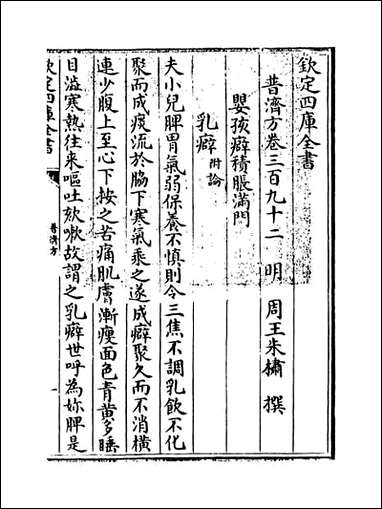 欽定四庫全書
普濟方卷三百九十二 明 周王朱橚 撰
嬰孩癖積脹滿門
乳癖附論
夫小兒脾胃氣弱保養不慎則令三焦不調乳飲不化
聚而成痰流於脇下寒氣乘之遂成癖聚久而不消橫
連少腹上至心下按之苦痛肌膚漸瘦面色青黃多睡
目澁寒熱往來嘔吐欬嗽故謂之乳癖世呼為妳脾是
欽定四庫全書
普濟方
一